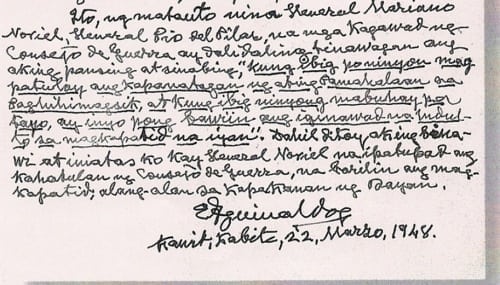 Ito, ng matanto nina General Mariano
Noriel, General Pio del Pilar, na mga Kagawad ng
Consejo de Guerra ay dalidaling tinawagan ang
aking pansing at sinabing, "Kung ibig po ninyong mag
patuloy ang kapanatagan ng ating Pamahalaan na
Paghihimagsik, at Kung ibig ninyong mabuhay pa
tayo, ay inyo pong bawiin ang iginawad na indul-
to sa magkapatid na iyan". Dahil dito'y aking bina-
wi at iniatas ko kay General Noriel na ipatupad ang
kahatulan ng Consejo de Guerra, na barilin ang mag-
kapatid, alang-alan sa kapakanan ng Bayan.
EAguinaldo
Kawit, Kabite, 22, Marzo, 1948.